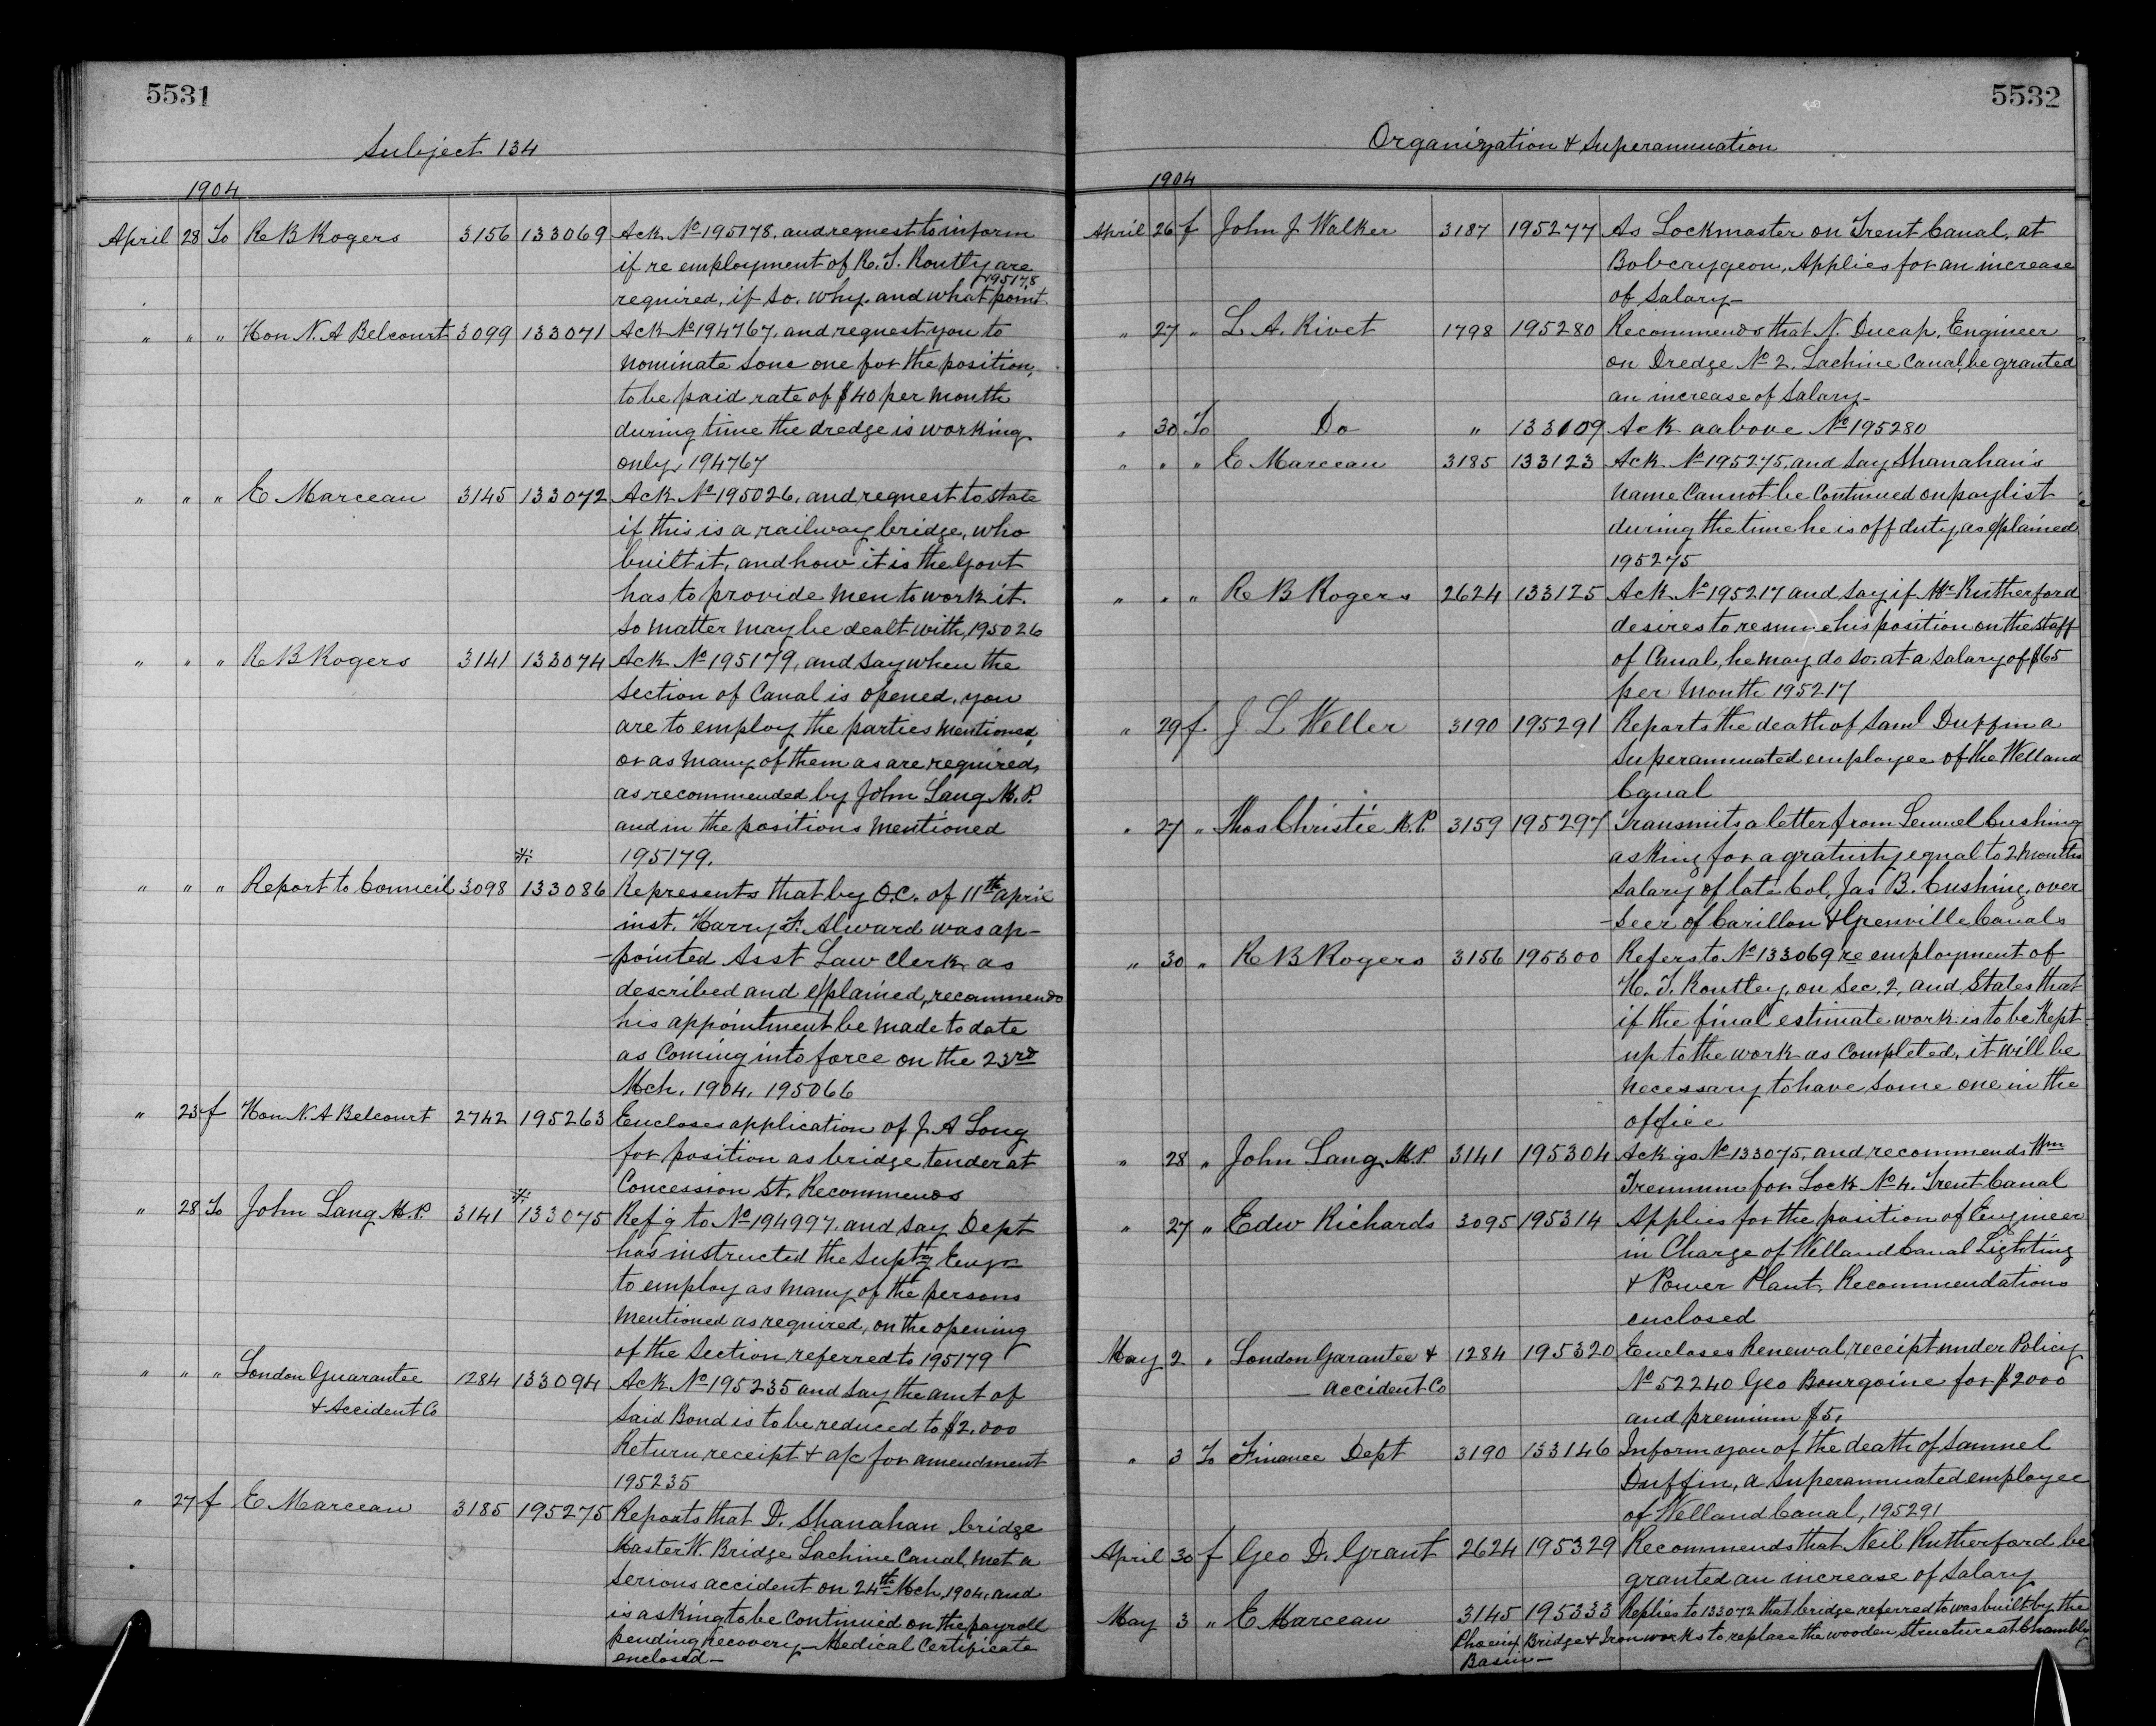 5531
Subject 134
1904
April 28 To R B Rogers 3156 133069 Ack No 195178, and request to inform
if re employment of R. T. Routly are
required, if so, why, and what point 195178
" " " Hon N. A Belcourt 3099 133071 Ack No 194767, and request you to
nominate some one for the position,
to be paid rate of $40 per month
during time the dredge is working
only, 194767
" " " E Marceau 3145 133072 Ack No 195026, and request to state
if this is a railway bridge, who
built it, and how it is the Govt
has to provide men to work it.
So matter may be dealt with, 195026
" " " R B Rogers 3141 133074 Ack No 195179, and say when the
section of Canal is opened, you
are to employ the parties mentioned,
or as many of them as are required,
as recommended by John Lang M.P.
and in the positions mentioned
195179.
" " " Report to Council 3098 133086 Represents that by O.C. of 11th April
inst. Harry F. Alward was ap-
-pointed Asst Law Clerk as
described and explained, recommends
his appointment be made to date
as coming into force on the 23rd
Mch. 1904, 195066
" 23 f Hon N. A Belcourt 2742 195263 Encloses application of J. A Long
for position as bridge tender at
Concession St. Recommends
" 28 To John Lang M.P. 3141 133075 Ref'g to No 194997, and say Dept
has instructed the Suptg Engr
to employ as many of the persons
mentioned as required, on the opening
of the Section referred to 195179
" " " London Guarantee 1284 133094 Ack No 195235 and say the amt of
& Accident Co said Bond is to be reduced to $2.000
Return receipt & a/c for amendment
195235
" 27 f E Marceau 3185 195275 Reports that D. Shanahan bridge
Master W. Bridge Lachine Canal, met a
serious accident on 24th Mch, 1904, and
is asking to be continued on the payroll
pending recovery - Medical Certificate
enclosed -
5532
Organization & Superannuation
1904
April 26 f John J Walker 3187 195277 As Lockmaster on Trent Canal, at
Bobcaygeon, Applies for an increase
of Salary -
" 27 " L A. Rivet 1798 195280 Recommends that N. Ducap, Engineer
on Dredge No 2, Lachine Canal, be granted
an increase of Salary -
" 30 To Do " 133109 Ack aabove No 195280
" " " E Marceau 3185 133123 Ack No 195275, and say Shanahan's
name Cannot be Continued on paylist
during the time he is off duty, as explained
195275
" " " R B Rogers 2624 133125 Ack No 195217 and say if Mr Rutherford
desires to resume his position on the staff
of Canal, he may do so, at a Salary of $65
per Month 195217
" 29 f J. L Weller 3190 195291 Reports the death of Saml Duffin a
Superannuated employee of the Welland
Canal
" 27 " Thos Christie M.P. 3159 195297 Transmits a letter from Lemuel Cushing
asking for a gratuity equal to 2 months
Salary of late Col, Jas B. Cushing, over
-seer of Carillon & Grenville Canals
" 30 " R B Rogers 3156 195300 Refers to No 133069 re employment of
H. T. Routley, on Sec. 2, and States that
if the final estimate work is to be kept
up to the work as completed, it will be
necessary to have some one in the
office
" 28 " John Lang M.P 3141 195304 Ack gs No 133075, and recommends Wm
for Lock No 4. Trent Canal
" 27 " Edw Richards 3095 195314 Applies for the position of Engineer
in Charge of Welland Canal Lighting
& Power Plant, Recommendations
enclosed
May 2 " London Garantee & 1284 195320 Encloses Renewal receipt under Policy
accident Co No 52240 Geo Bourgoine for $2000
and premium $5.
" 3 To Finance Dept 3190 133146 Inform you of the death of Samuel
Duffin, a Superannuated employee
of Welland Canal, 195291
April 30 f Geo D. Grant 2624 195329 Recommends that Neil Rutherford be
granted an increase of Salary
May 3 " E Marceau 3145 195333 Replies to 133072 that bridge referred to was built by the
Phoenix Bridge & Iron works to replace the wooden structure at Chambly
Basin -